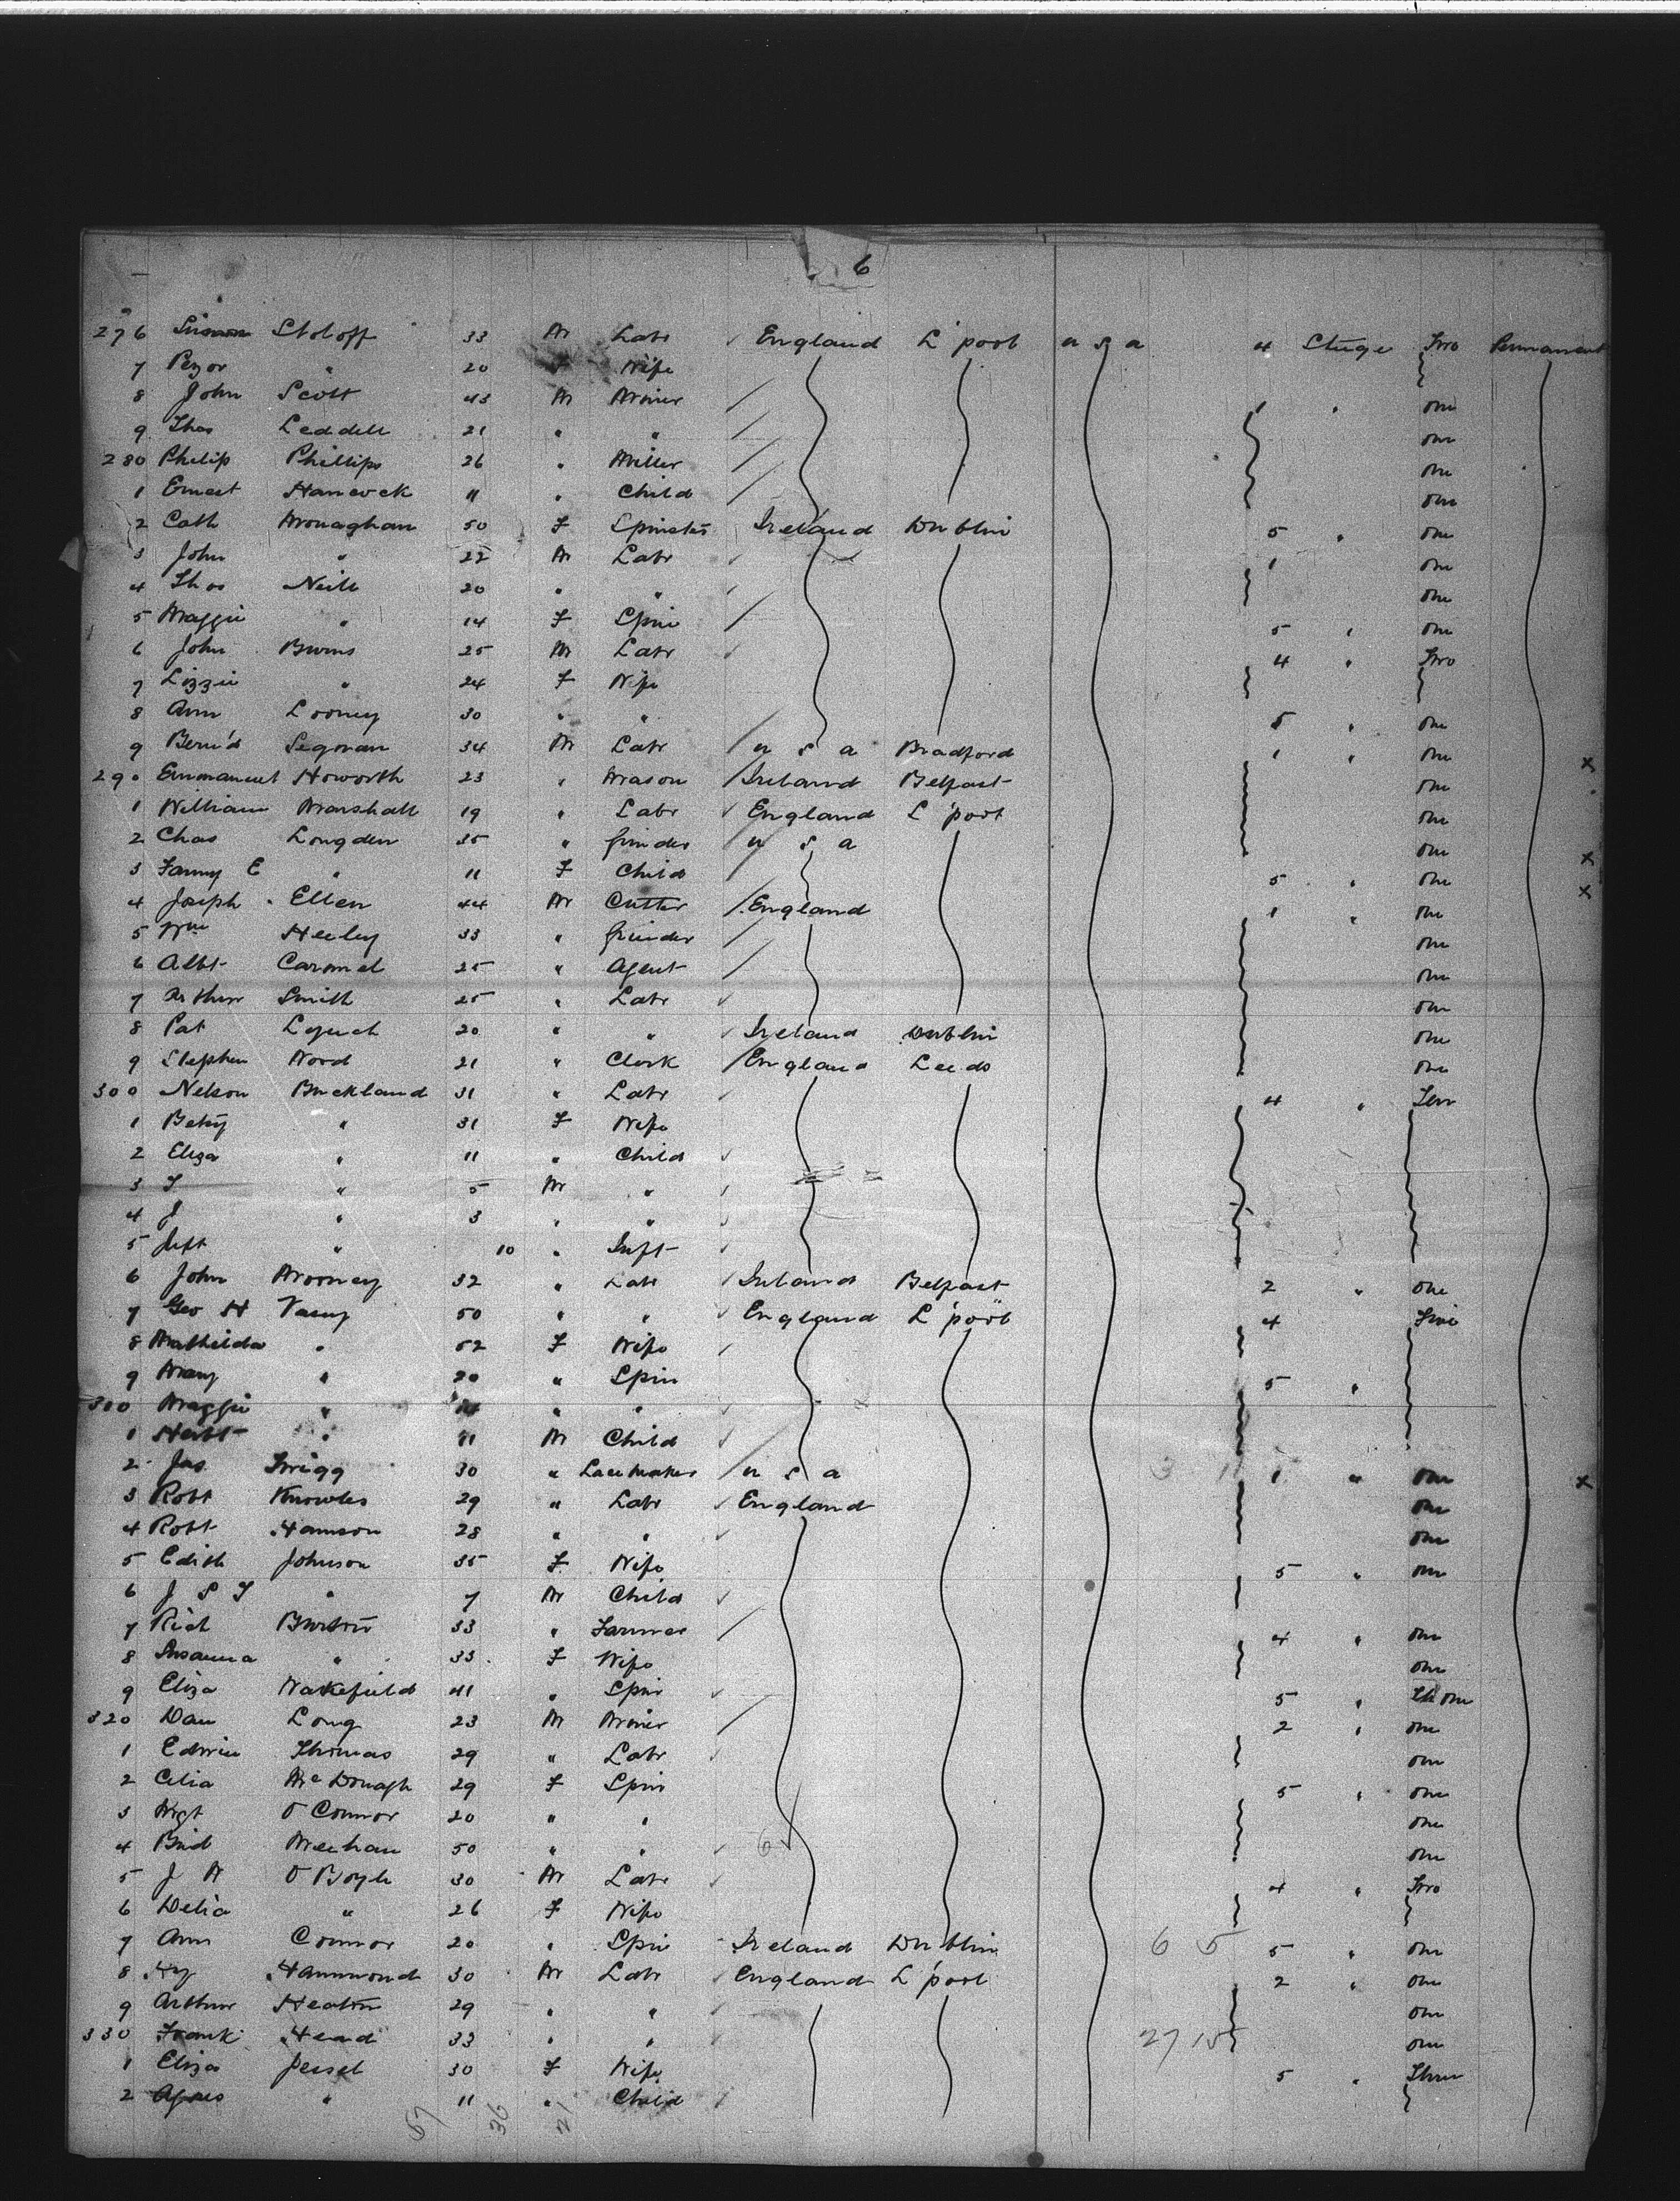 6
276 Simon Stoloff 33 M Labr England L'pool U S A 4 Stuge Two Permanent
7 " 20 Wife
8 John Scott 43 M Miner 1 " One
9 Thos Leddell 21 " " One
280 Philip Phillips 26 " Miller One
1 Ernest Hancock 11 " Child One
2 Cath Monaghan 50 F Spinster Ireland Dublin 5 " One
3 John " 22 M Labr 1 One
4 Thos Neill 20 " " One
5 Maggie " 14 F Spin 5 " One
6 John Burns 25 M Labr 4 " Two
7 Lizzie " 24 F Wife
8 Ann Looney 30 " " 5 " One
9 Bern'd Segman 34 M Labr U S A Bradford 1 " One x
290 Emmanuel Howorth 23 " Mason Ireland Belfast One
1 William Marshall 19 " Labr England L'pool One
2 Chas Longden 35 " Grinder U S A One x
3 Fanny E " 11 F Child 5 " One x
4 Joseph Ellen 44 M Cutter England 1 " One
5 Wm Heeley 33 " Grinder One
6 Albt Caromel 25 " Agent One
7 Arthur Smith 25 " Labr One
8 Pat Lynch 20 " " Ireland Dublin One
9 Stephen Wood 21 " Clerk England Leeds One
300 Nelson Buckland 31 " Labr 4 "
1 Betsy " 31 F Wife
2 Eliza " 11 " Child
3 T " 5 M "
4 J " 3 " "
5 Inft " 10 " Inft
6 John Mooney 32 " Labr Ireland Belfast 2 " One
7 Geo H Vasey 50 " " England L'pool 4 Five
8 Mathilda " 52 F Wife
9 Mary " 20 " Spin 5 "
310 Maggie " " "
1 Herbt " 11 M Child
2 Jas Twigg 30 " Lacemaker U S A 1 " One x
3 Robt Knowles 29 " Labr England One
4 Robt Hamson 28 " " One
5 Edith Johnson 35 F Wife 5 " One
6 J S T " 7 M Child
7 Rich Burton 33 " Farmer 4 " One
8 Susanna " 33 F Wife One
9 Eliza Wakefield 41 " Spin 5 " One
320 Dan Long 23 M Miner 2 " One
1 Edwin Thomas 29 " Labr One
2 Celia McDonagh 29 F Spin 5 " One
3 Mgt O Connor 20 " " One
4 Brid Meehan 50 " " 6 One
5 J W O Boyle 30 M Labr 4 " Two
6 Delia " 26 F Wife
7 Ann Connor 20 " Spin Ireland Dublin 6 5 5 " One
8 Hy Hammond 30 M Labr England L'pool 2 " One
9 Arthur Heaton 29 " " One
330 Frank Head 33 " " 27 15 One
1 Eliza Jessel 30 F Wife 5 " Three
2 Agnes " 11 " Child
57 36 21